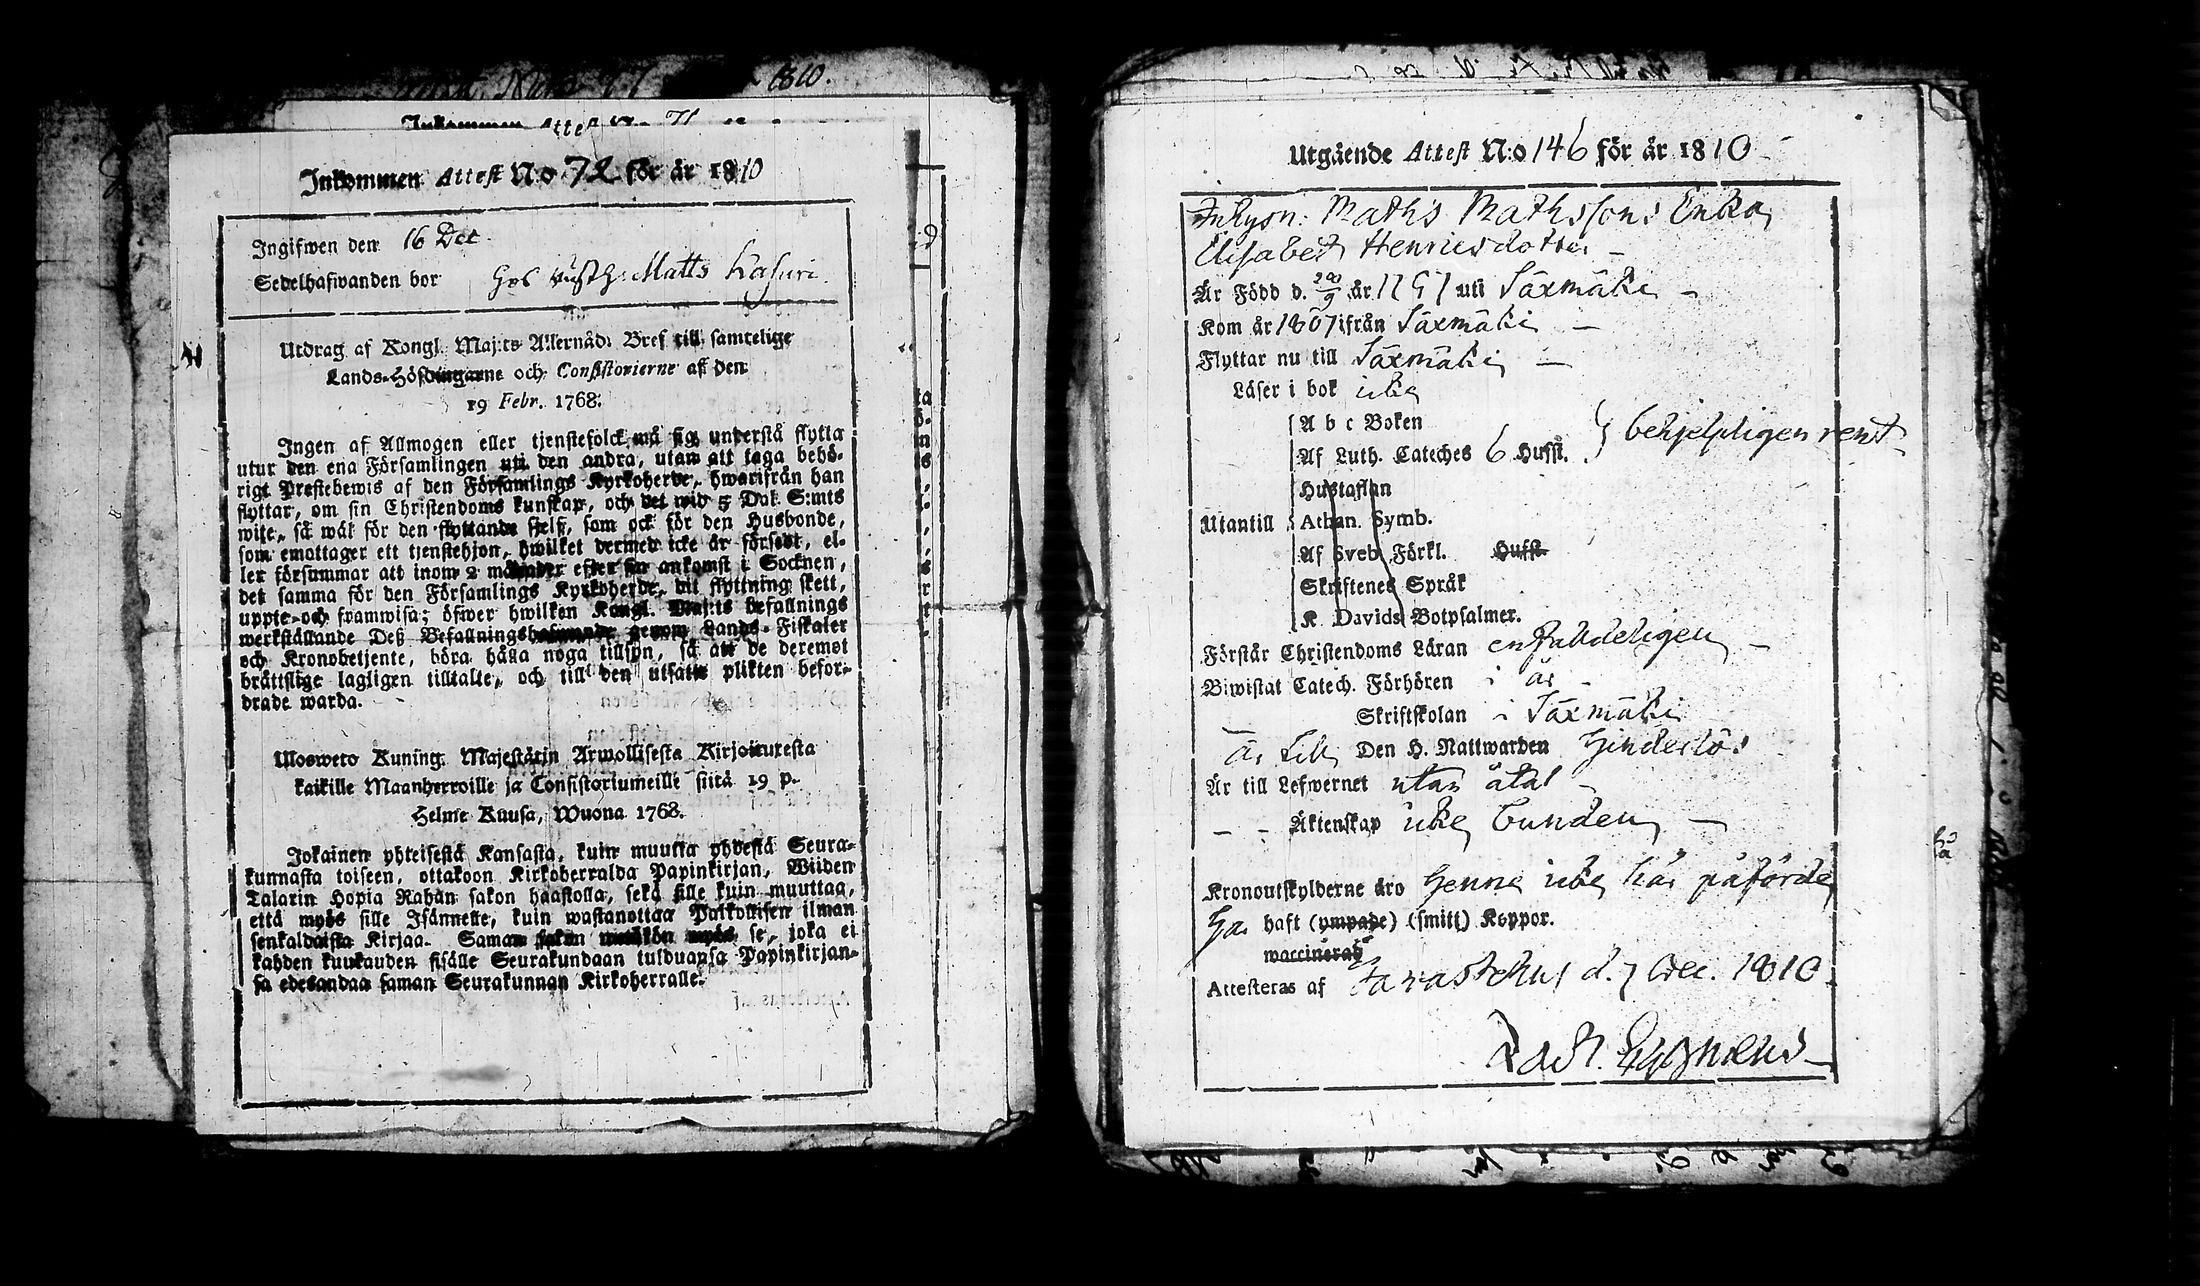 1810.
Inkommen Attest N:o 71
Inkommen Attest N:o 72 för år 1810
Ingifwen den 16 Dec.
Sedelhafwanden bor hos Rusth: Matts Kasuri
Utdrag af Kongl. Maj:ts Allernåd. Bref till samtelige
Lands-Höfdingarne och Consistorierne af den
19 Febr. 1768.
Ingen af Allmogen eller tjenstefolck må sig understå flytta
utur den ena Församlingen uti den andra, utan att taga behö-
rigt Prestebewis af den Församlings Kyrkoherde, hwarifrån han
flyttar, om sin Christendoms kunskap, och det wid 5 Dal. S:mts
wite, så wäl för den flyttande sjelf, som ock för den Husbonde,
som emottager ett tjenstehjon, hwilket dermed icke är försedt, el-
ler försummar att inom 2 månader efter sin ankomst i Socknen,
det samma för den Församlings Kyrkoherde, dit flyttning skett,
uppte- och framwisa; öfwer hwilken Kongl. Maj:ts befallnings
werkställande Deß Befallningshafwande genom Lands-Fiskaler
och Kronobetjente, böra hålla noga tillsyn, så att de deremot
bråttslige lagligen tilltalte, och till den utsatte plikten befor-
drade warda.
Ulosweto Kuning. Majestätin Arwollisesta Kirjoituxesta
kaikille Maanherroille ja Consistoriumeille siitä 19 p.
Helme Kuusa, Wuona 1768.
Jokainen yhteisestä Kansasta, kuin muutta yhdestä Seura-
kunnasta toiseen, ottakoon Kirkoherralda Papinkirjan, Wiiden
Talarin Hopia Rahan sakon haastolla, sekä sille kuin muuttaa,
että myös sille Isännelle, kuin wastanottaa Palkollisen ilman
senkaldaista Kirjaa. Saman sakon wetäkön myös se, joka ei
kahden kuukauden sisälle Seurakundaan tulduansa Papinkirjan-
sa edesandaa saman Seurakunnan Kirkoherralle.
Utgående Attest N:o 146 för år 1810
Inhysn: Maths Mathssons Enka
Elisabet Henricsdotter
Är Född d. år uti Säxmäki
Kom år 1807 ifrån Säxmäki
Flyttar nu till Säxmäki
Läser i bok icke
A b c Boken
Af Luth. Cateches 6 Hufst. behjelpligen rent
Hustaflan
Utantill Athan. Symb.
Af Sveb. Förkl. Hufst.
Skriftenes Språk
K. Davids Botpsalmer.
Förstår Christendoms Läran enfaldeligen
Biwistat Catech. Förhören i år
Skriftskolan i Säxmäki
är till Den H. Nattwarden hinderlös
Är till Lefwernet utan åtal
Äktenskap icke bunden
Kronoutskylderne äro henne icke här påförde
Ha haft (ympade) (smitt) Koppor.
waccinerad
Attesteras af Tavastehus d. 7 Dec. 1810.